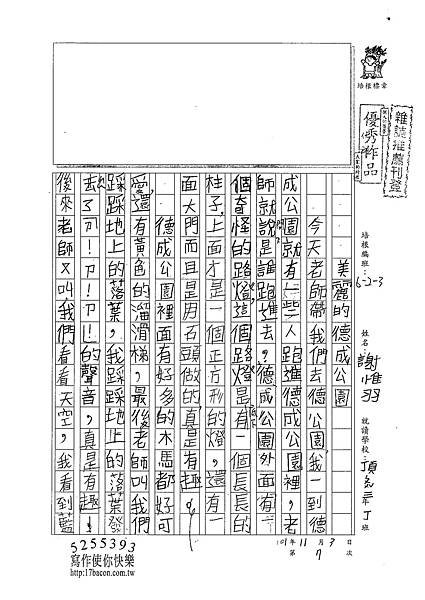 雜誌推薦刊登
優秀作品
培根楷章
培根編班：6-2-3
姓名 謝惟羽
就讀學校：頂
年丁班
101年11月3日
第7次
美麗的德成公園
今天老師帶我們去德公園，我一到德
成公園就有一些人跑進德成公園裡，老
師就說是誰跑進去。德成公園外面有一
個奇怪的路燈，這個路燈是有一個長長的
柱子，上面才是一個正方形的燈，還有一
面大門而且是用石頭做的真是有趣。
德成公園裡面有好多的木馬都好可
愛，還有黃色的溜滑梯，最後老師叫我們
踩踩地上的落葉，我踩踩地上的落葉發
去了ㄗ！ㄗ！ㄗ！的聲音，真是有趣！
後來老師又叫我們看看天空，我看到藍
5255393
寫作使你快樂
http://17bacon.com.tw